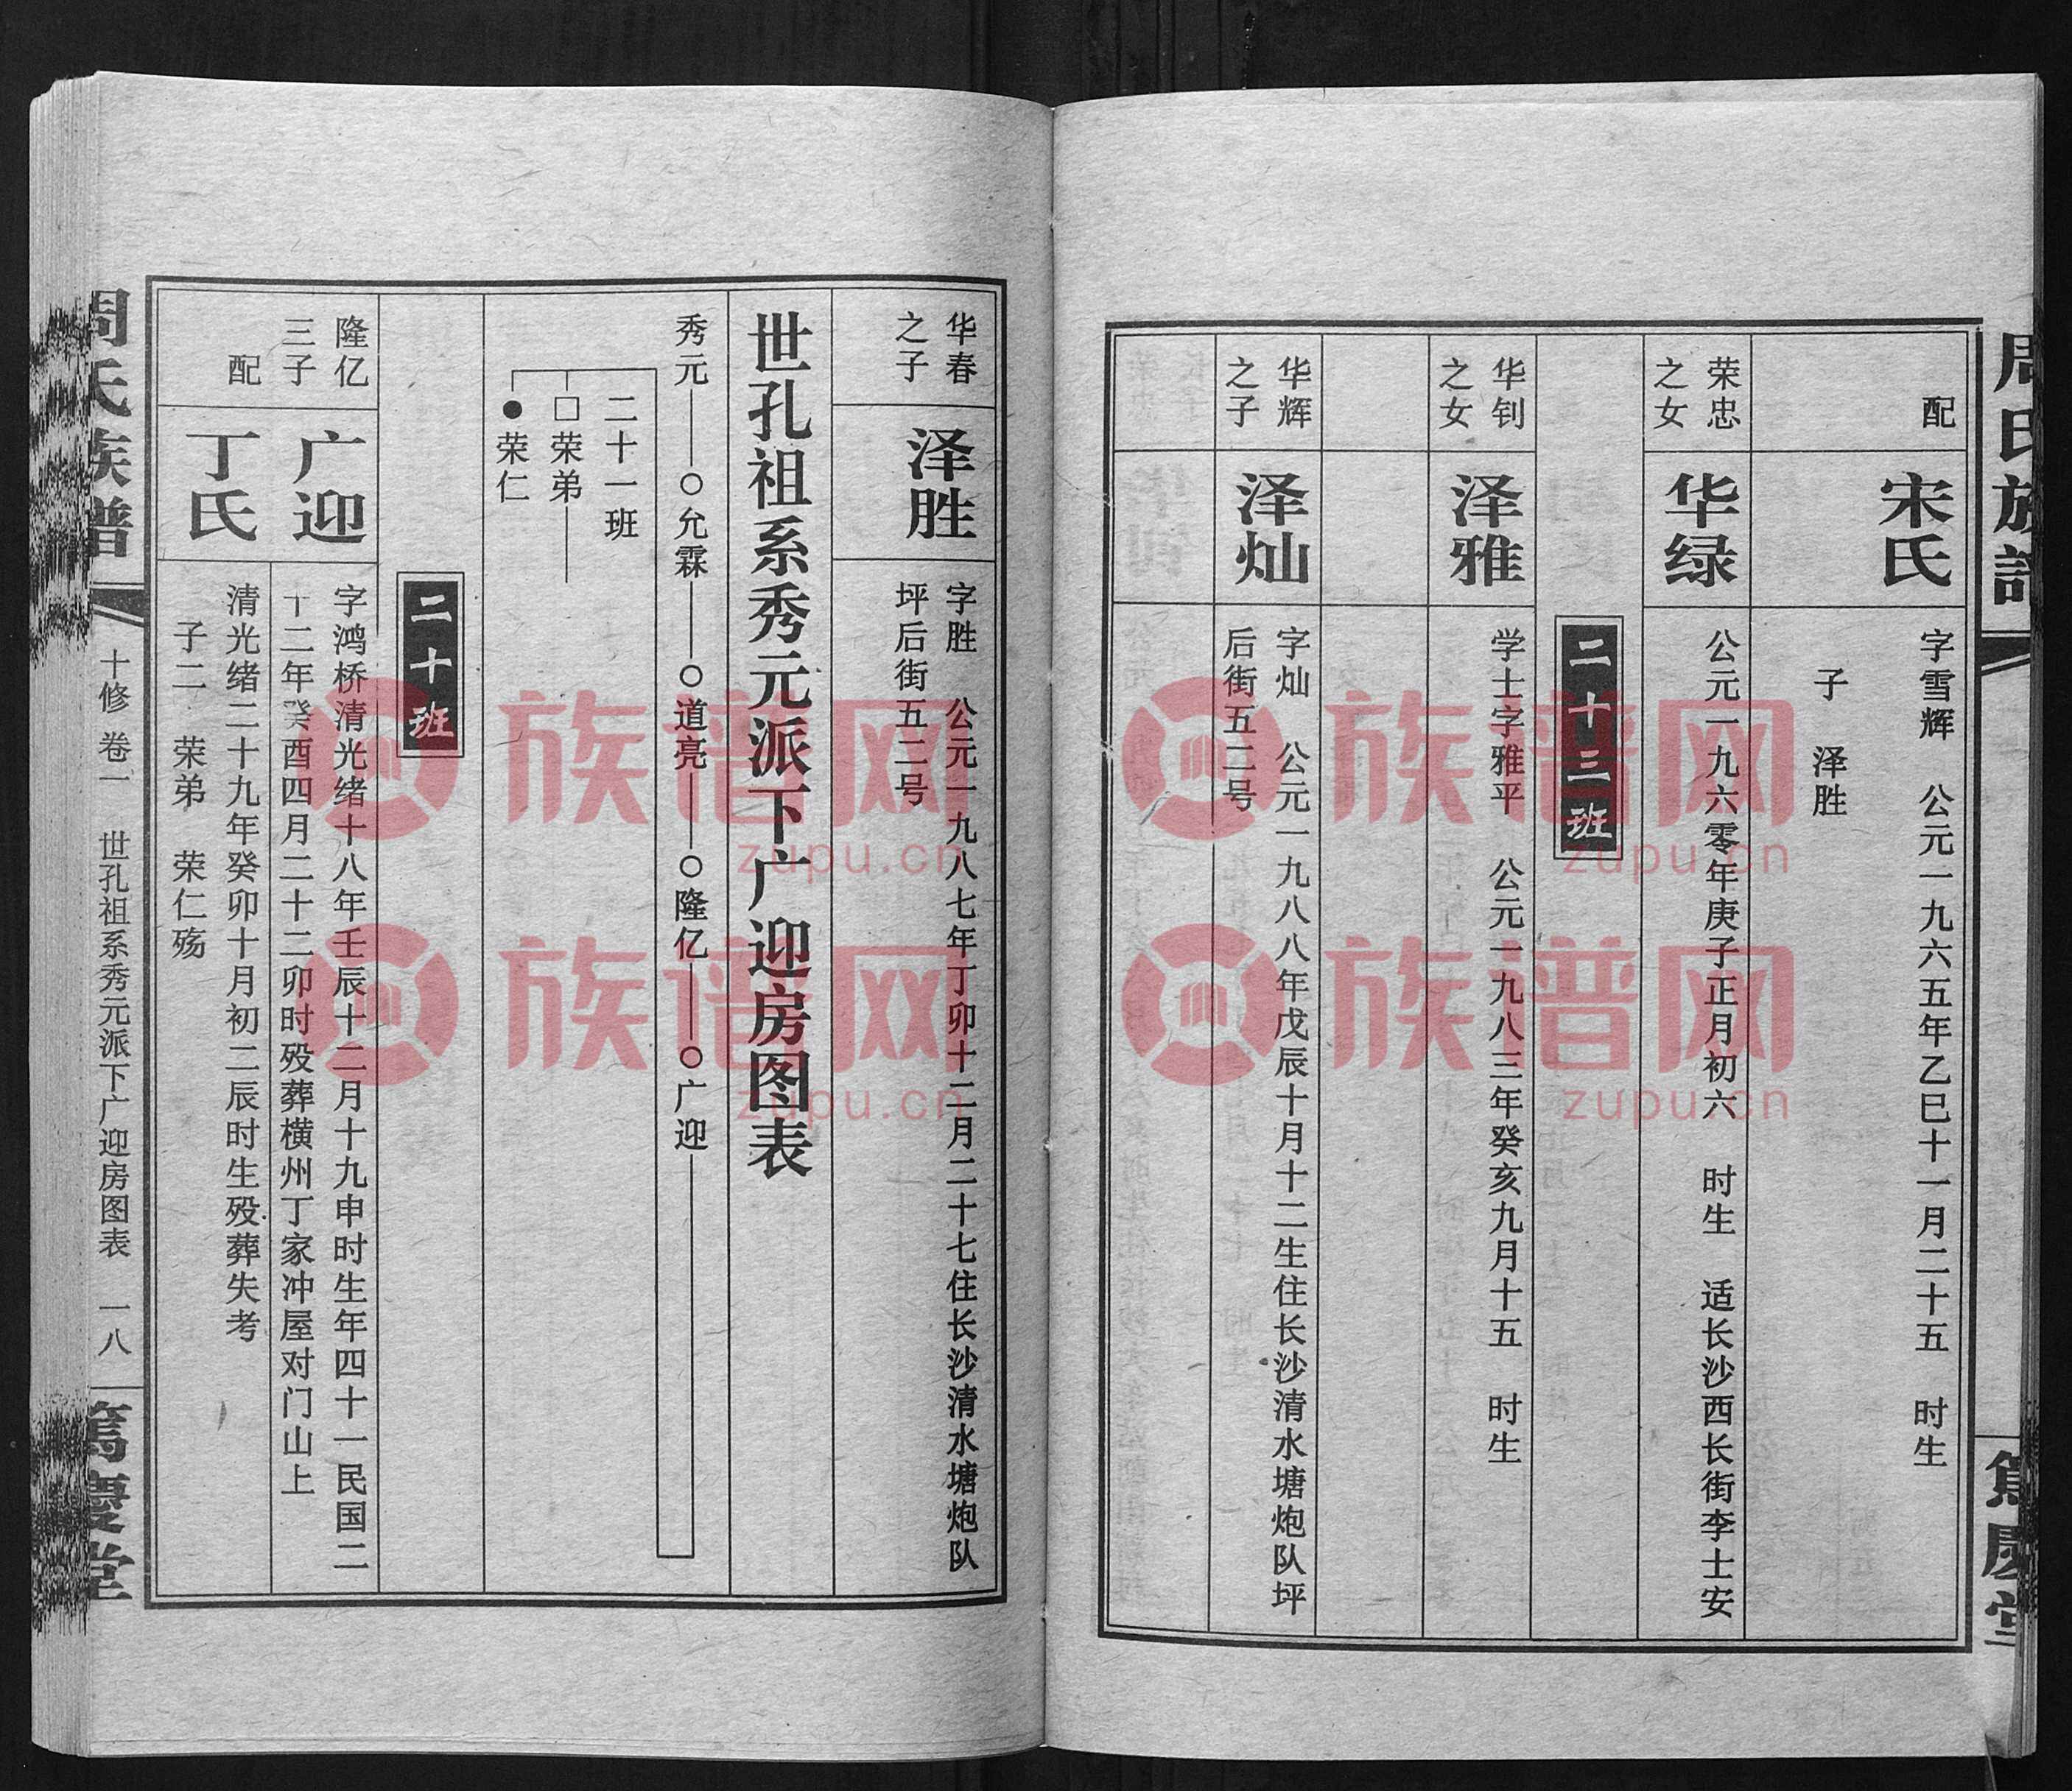 周氏族譜
篤慶堂
配
宋氏
字雪辉　公元一九六五年乙巳十一月二十五　时生
子　泽胜
荣忠
之女
华绿
公元一九六零年庚子正月初六　时生　适长沙西长街李士安
二十三班
华钊
之女
泽雅
学士字雅平　公元一九八三年癸亥九月十五　时生
华辉
之子
泽灿
字灿　公元一九八八年戊辰十月十二生住长沙清水塘炮队坪
后街五二号
华春
之子
泽胜
字胜　公元一九八七年丁卯十二月二十七住长沙清水塘炮队
坪后街五二号
世孔祖系秀元派下广迎房图表
秀元——○允霖——○道亮——○隆亿——○广迎
二十一班
□荣弟
●荣仁
二十班
隆亿
三子
广迎
字鸿桥清光绪十八年壬辰十二月十九申时生年四十一民国二
十二年癸酉四月二十二卯时殁葬横州丁家冲屋对门山上
配
丁氏
清光绪二十九年癸卯十月初二辰时生殁葬失考
子二　荣弟　荣仁殇
周氏族譜
十修 卷一　世孔祖系秀元派下广迎房图表　一八
篤慶堂
族谱网
zupu.cn
族谱网
zupu.cn
族谱网
zupu.cn
族谱网
zupu.cn